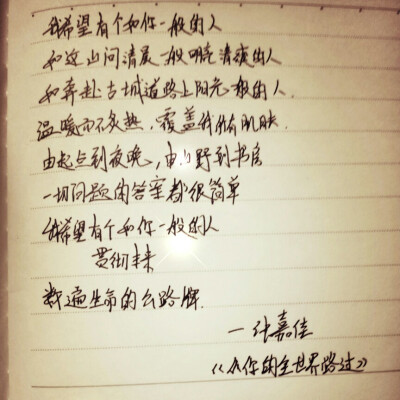 我希望有个和你一般的人
和这山间清晨一般明亮清爽的人
如奔赴古城道路上阳光一般的人
温暖而不炙热，覆盖我所有肌肤
由起点到夜晚，由山野到书房
一切问题的答案都很简单
我希望有个如你一般的人
贯彻未来
数遍生命的公路牌
—张嘉佳
《从你的全世界路过》